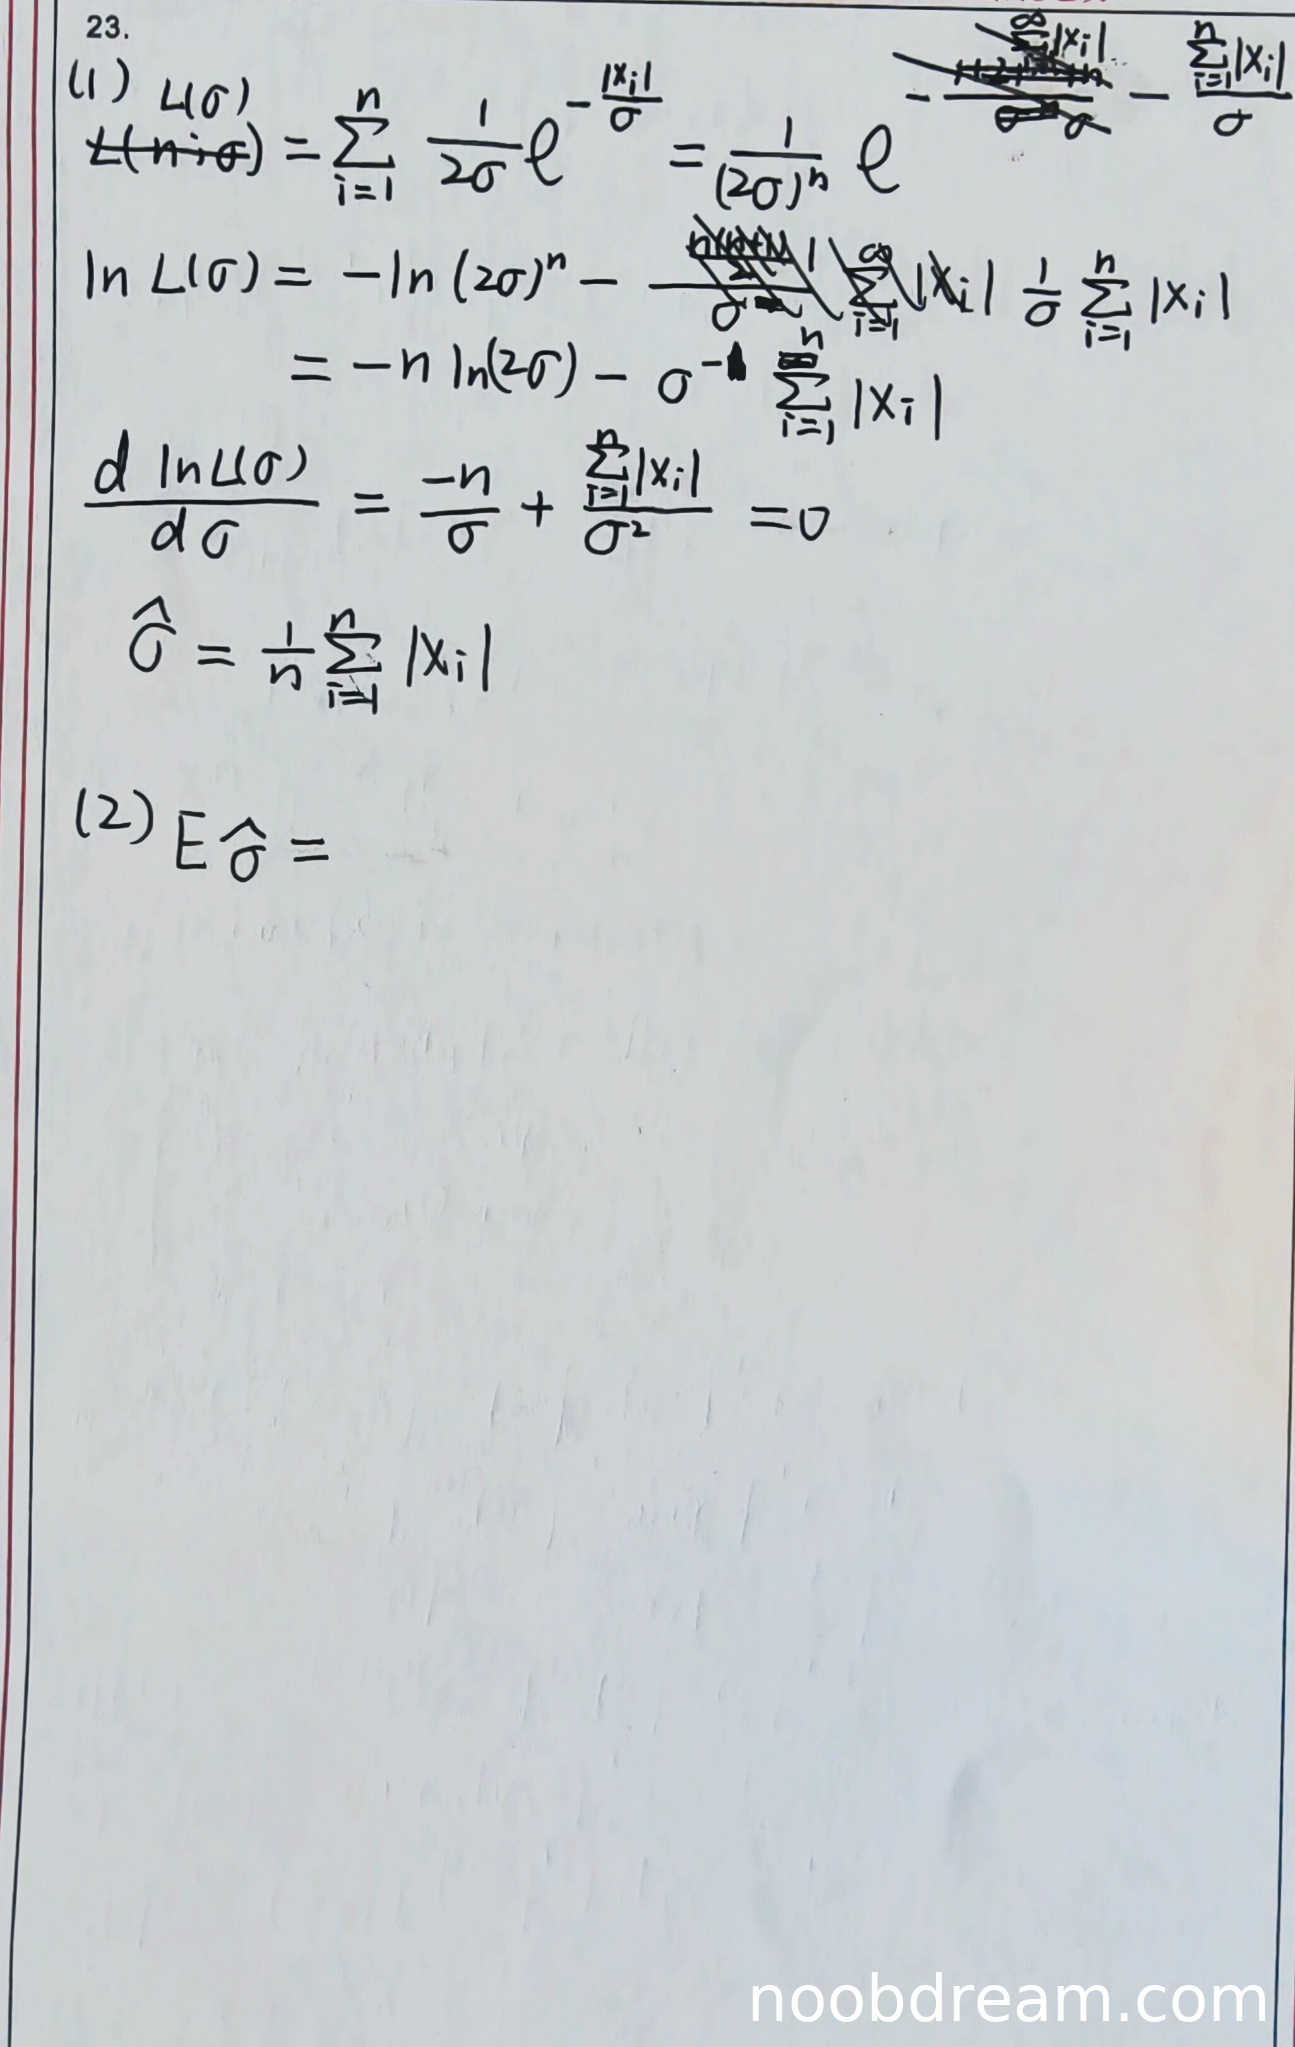 23.
(1) L(σ) = \sum_{i=1}^{n} \frac{1}{2σ} e^{-\frac{|x_i|}{σ}} = \frac{1}{(2σ)^n} e^{-\frac{\sum_{i=1}^{n}|x_i|}{σ}}
ln L(σ) = -ln(2σ)^n - \frac{1}{σ} \sum_{i=1}^{n} |x_i|
= -n ln(2σ) - σ^{-1} \sum_{i=1}^{n} |x_i|
\frac{d ln L(σ)}{dσ} = \frac{-n}{σ} + \frac{\sum_{i=1}^{n}|x_i|}{σ^2} = 0
\hat{σ} = \frac{1}{n} \sum_{i=1}^{n} |x_i|
(2) E\hat{σ} =
noobdream.com